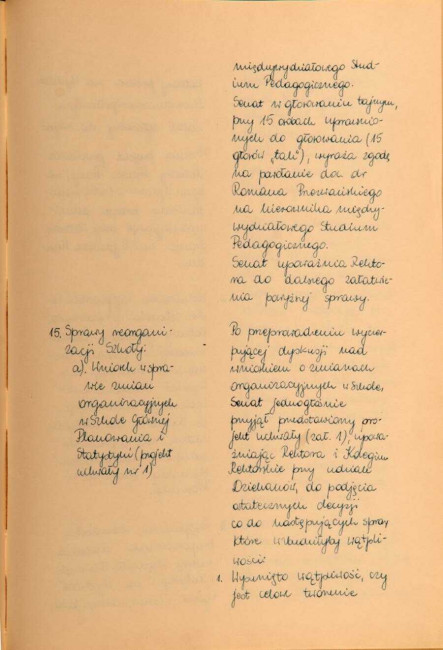 międzywydziałowego Stud-
ium Pedagogicznego.
Senat w głosowaniu tajnym,
przy 15 osobach uprawnio-
nych do głosowania (15
głosów „tak"), wyraża zgodę
na powołanie doc. dr
Romana
na kierownika między-
wydziałowego Studium
Pedagogicznego.
Senat upoważnia Rekto-
ra do dalszego załatwie-
nia powyższej sprawy.
15. Sprawy reorgani-
zacji Szkoły:
a). Wniosek w spra-
wie zmian
organizacyjnych
w Szkole Głównej
Planowania i
Statystyki (projekt
uchwały nr 1)
Po przeprowadzeniu wyczer-
pującej dyskusji nad
wnioskiem o zmianach
organizacyjnych w Szkole,
Senat jednogłośnie
przyjął przedstawiony pro-
jekt uchwały (zał. 1), upowa-
żniając Rektora i Kolegium
Rektorskie przy udziale
Dziekanów, do podjęcia
ostatecznych decyzji
co do następujących spraw
które wzbudziłyby wątpli-
wości:
1. Wysunięto wątpliwość, czy
jest celowe tworzenie